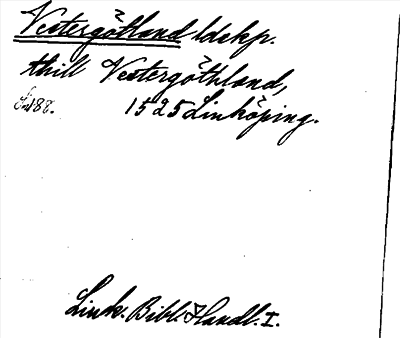 Vestergötland ldskp.
till Vestergöthland,
Sid 87. 1525 Linköping.
Link. Bibl. Handl. I.